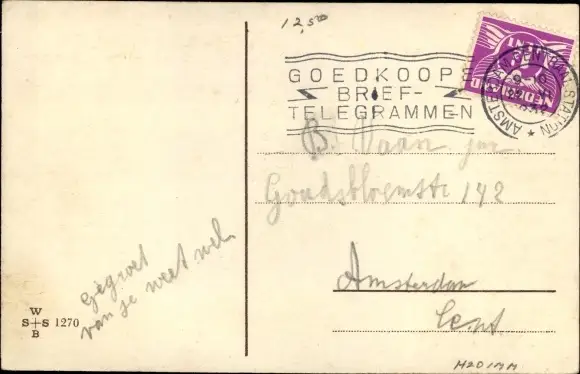 12,50
GOEDKOOPE
BRIEF-
TELEGRAMMEN
AMSTERDAM CENTRAAL STATION
NEDERLAND
B. Vaan jr.
Goudsbloemstr 142
Amsterdam
Cent.
Gegroet
van je weet wel.
W
S+S 1270
B
M201MM